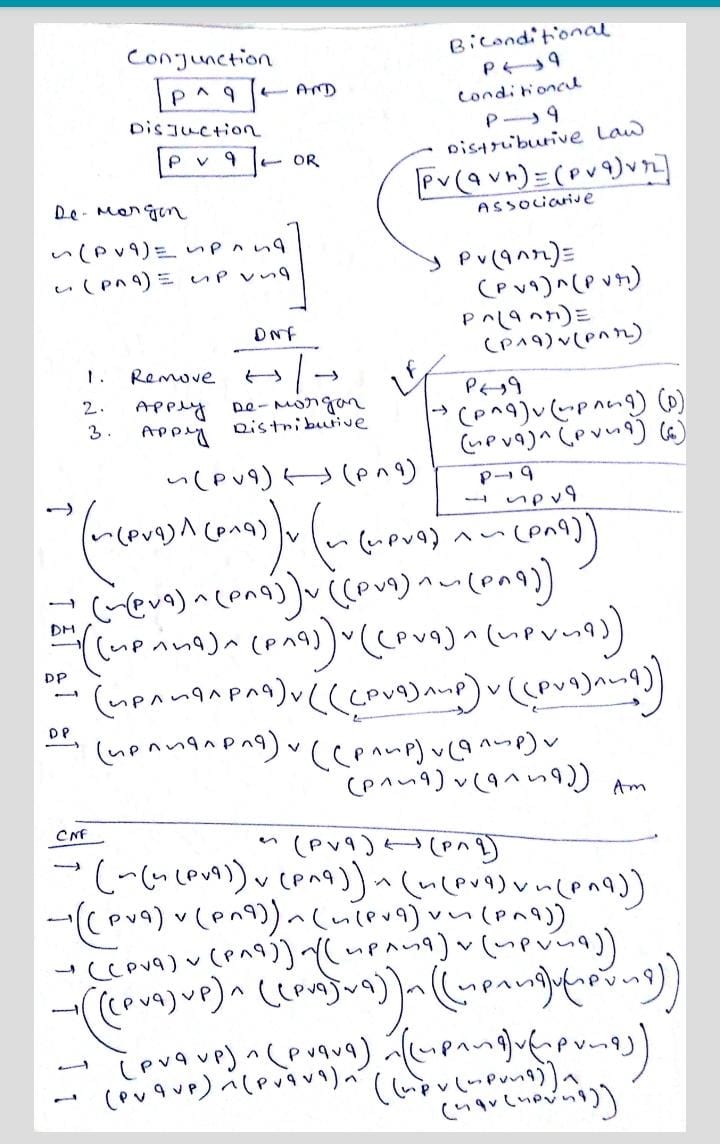 Conjunction
p ∧ q ← AND
Disjuction
p ∨ q ← OR
De-Morgan
~(p∨q) ≡ ~p ∧ ~q
~(p∧q) ≡ ~p ∨ ~q
Biconditional
p ↔ q
Conditional
p → q
Distributive Law
[p∨(q∨r) ≡ (p∨q)∨r]
Associative
p∨(q∧r) ≡
(p∨q)∧(p∨r)
p∧(q∧r) ≡
(p∧q)∨(p∧r)
DNF
1. Remove ↔ / →
2. Apply De-Morgan
3. Apply Distributive
p↔q
→ (p∧q)∨(~p∧~q) (D)
(~p∨q)∧(p∨~q) (C)
p→q
→ ~p∨q
~(p∨q) ↔ (p∧q)
→ (~(p∨q) ∧ (p∧q)) ∨ (~(~p∨q) ∧ ~(p∧q))
→ (~(p∨q) ∧ (p∧q)) ∨ ((p∨q) ∧ ~(p∧q))
DM → ((~p∧~q) ∧ (p∧q)) ∨ ((p∨q) ∧ (~p∨~q))
DP → (~p∧~q∧p∧q) ∨ (((p∨q)∧~p) ∨ ((p∨q)∧~q))
DP → (~p∧~q∧p∧q) ∨ ((p∧~p)∨(q∧~p)∨
(p∧~q)∨(q∧~q)) Ans
CNF
~(p∨q) ↔ (p∧q)
→ (~(~(p∨q)) ∨ (p∧q)) ∧ (~(p∨q) ∨ ~(p∧q))
→ ((p∨q) ∨ (p∧q)) ∧ (~(p∨q) ∨ ~(p∧q))
→ ((p∨q) ∨ (p∧q)) ∧ ((~p∧~q) ∨ (~p∨~q))
→ (((p∨q)∨p) ∧ ((p∨q)∨q)) ∧ ((~p∧~q)∨(~p∨~q))
→ (p∨q∨p) ∧ (p∨q∨q) ∧ ((~p∧~q)∨(~p∨~q))
→ (p∨q∨p) ∧ (p∨q∨q) ∧ ((~p∨(~p∨~q)) ∧
(~q∨(~p∨~q)))